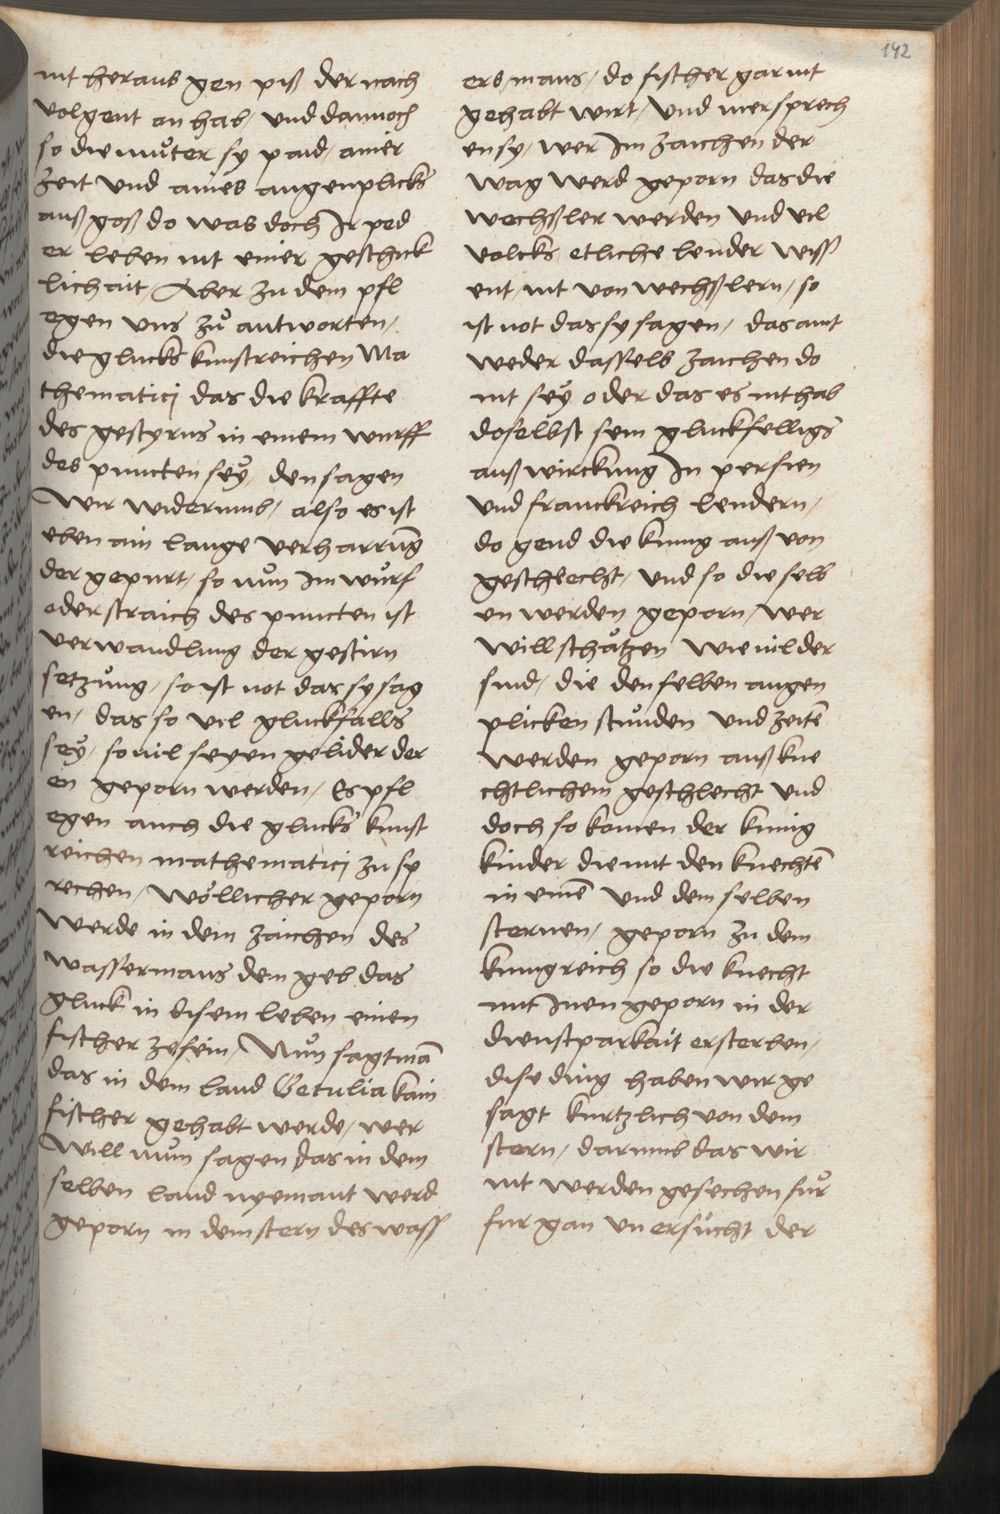 142
nit heraus gen piß der nach
volgent an hab, und dannoch
so die muͦter sy paid, ainer
zeit und aines augenplicks
auß goß do was doch Ir ped
er leben nit einer geschick
lichait, Aber zu dem pfl
egen uns zuͦ antworten,
die glucks kunstreichen Ma
thematicj das die kraffte
des gestyrns in einem wurff
des puncten seÿ, den sagen
wir widerumb, also es ist
eben ain lange verharrung
der gepurt, so nuͦn Im wuͦrf
oder straich des puncten ist
verwandlung der gestirn
setzuͦng, so ist not das sy sag
en, das so vil gluckfalls
seÿ, so vil seyen gelider der
en geporn werden, Es pfl
egen auch die glucks kunst
reichen mathematicj zu sp
rechen, woͤllicher geporn
werde in dem zaichen des
wassermans dem geb das
gluck in disem leben einen
fischer ze sein, Nuͦn sagt mā
das in dem land Getulia kain
fischer gehabt werde, wer
will nuͦn sagen das in dem
selben land nyemant werd
geporn in dem stern des wass
ers mans, do fischer gar nit
gehabt wirt, Und mer sprech
en sy, wer Im zaichen der
wag werd geporn das die
wechßler werden und vil
volcks etliche lender wiss
ent, nit von wechßlern, so
ist not das sy sagen, das aint
weder dasselb zaichen do
nit seÿ oder das es nit hab
doselbst sein gluckselligs
auß wirckung In persien
und franckreich lendern,
do gend die kunig auß von
geschlecht, und so die selb
en werden geporn, wer
will schaͤtzen wie vil der
sind, die den selben augen
plicken stuͦnden und zeitē
werden geporn auß kne
chtlichem geschlecht und
doch so komen der kunig
kinder die mit den knechtē
in einē und dem selben
sternen, geporn zu dem
kunigreich so die knecht
mit Inen geporn in der
dienstparkait ersterben,
dise ding haben wir ge
sagt kurtzlich von dem
stern, darumb das wir
nit werden gesechen fuͤr
fur gan unersuͦcht der